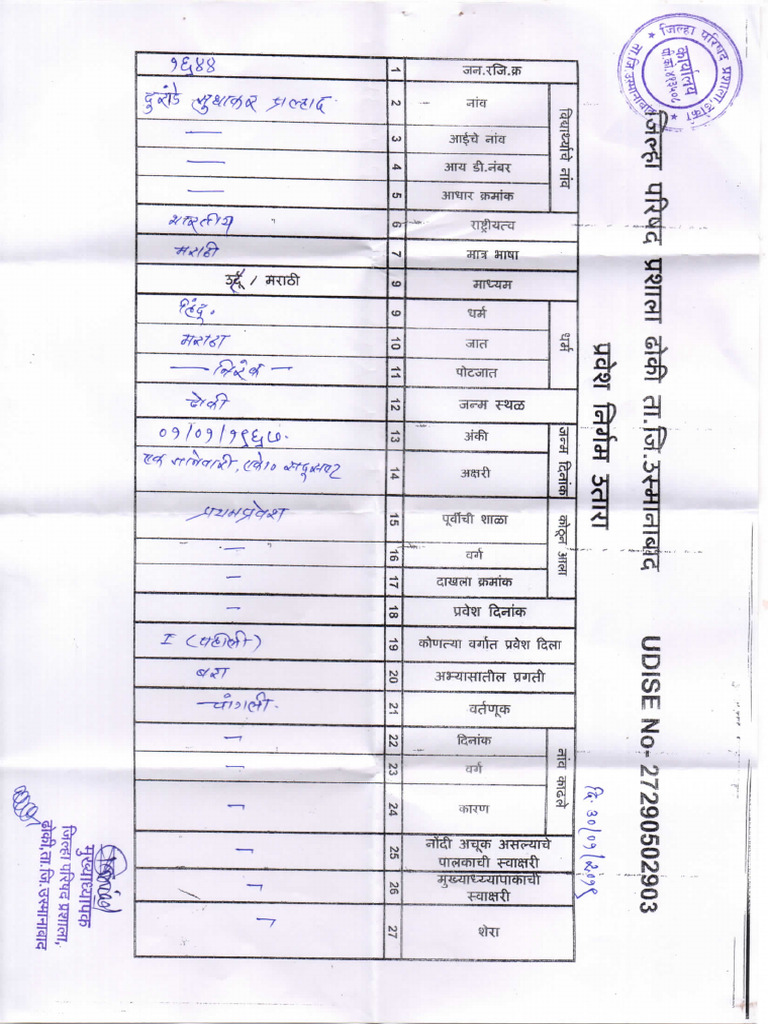 जिल्हा परिषद प्रशाला ढोकी ता.जि.उस्मानाबाद UDISE No- 27290502903
प्रवेश निर्गम उतारा
दि. 30/09/2019
विद्यार्थ्याचे नांव
धर्म
जन्म दिनांक
कोठून आला
नांव काढले
जन.रजि.क्र 1 १६४४
नांव 2 दुरांडे सुधाकर प्रल्हाद
आईचे नांव 3 —
आय डी.नंबर 4 —
आधार क्रमांक 5 —
राष्ट्रीयत्व 6 भारतीय
मात्र भाषा 7 मराठी
माध्यम 9 उर्दू / मराठी
धर्म 9 हिंदू.
जात 10 मराठा
पोटजात 11 — निरंक —
जन्म स्थळ 12 ढोकी
अंकी 13 ०१/०१/१९६७.
अक्षरी 14 एक जानेवारी, एको० सदूसष्ट
पूर्वीची शाळा 15 प्रथमप्रवेश
वर्ग 16 —
दाखला क्रमांक 17 —
प्रवेश दिनांक 18 —
कोणत्या वर्गात प्रवेश दिला 19 I (पहीली)
अभ्यासातील प्रगती 20 बरा
वर्तणूक 21 चांगली.
दिनांक 22 —
वर्ग 23 —
कारण 24 —
नोंदी अचूक असल्याचे
पालकाची स्वाक्षरी 25 —
मुख्याध्य्यापाकाची
स्वाक्षरी 26 —
शेरा 27 —
मुख्याध्यापक
जिल्हा परिषद प्रशाला,
ढोकी,ता.जि.उस्मानाबाद
जिल्हा परिषद प्रशाला ढोकी
ता.जि.उस्मानाबाद
कार्यालय